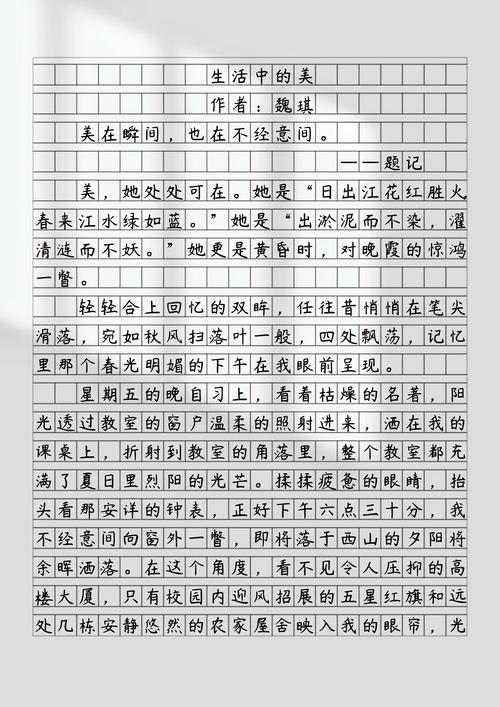 生活中的美
作者：魏琪
美在瞬间，也在不经意间。
——题记
美，她处处可在。她是“日出江花红胜火
春来江水绿如蓝。”她是“出淤泥而不染，濯
清涟而不妖。”她更是黄昏时，对晚霞的惊鸿
一瞥。
轻轻合上回忆的双眸，任往昔悄悄在笔尖
滑落，宛如秋风扫落叶一般，四处飘荡，记忆
里那个春光明媚的下午在我眼前呈现。
星期五的晚自习上，看着枯燥的名著，阳
光透过教室的窗户温柔的照射进来，洒在我的
课桌上，折射到教室的角落里，整个教室都充
满了夏日里烈阳的光芒。揉揉疲惫的眼睛，抬
头看那安详的钟表，正好下午六点三十分，我
不经意间向窗外一瞥，即将落于西山的夕阳将
余晖洒落。在这个角度，看不见令人压抑的高
楼大厦，只有校园内迎风招展的五星红旗和远
处几栋安静悠然的农家屋舍映入我的眼帘，光